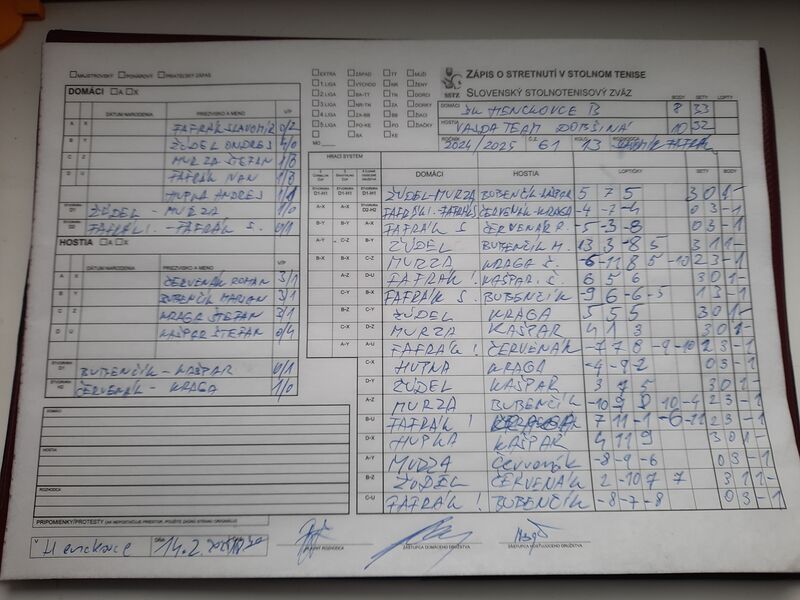 MAJSTROVSKÝ POHÁROVÝ PRIATEĽSKÝ ZÁPAS
DOMÁCI A X
DÁTUM NARODENIA PRIEZVISKO A MENO V/P
A X FAFRÁK SLAVOMÍR 0/2
B Y ŽÚDEL ONDREJ 4/0
C Z MURZA ŠTEFAN 1/3
D U FAFRÁK IVAN 1/3
HUPKA ANDREJ 1/1
ŠTVORHRA D1 ŽÚDEL - MURZA 1/0
ŠTVORHRA D2 FAFRÁK I. - FAFRÁK S. 0/1
HOSTIA A X
DÁTUM NARODENIA PRIEZVISKO A MENO V/P
A X ČERVENÁK ROMAN 3/1
B Y BUBENČÍK MARIAN 3/1
C Z KRAGA ŠTEFAN 3/1
D U KAŠPAR ŠTEFAN 0/4
BUBENČÍK - KAŠPAR 0/1
ČERVENÁK - KRAGA 1/0
DOMÁCI
HOSTIA
ROZHODCA
PRIPOMIENKY/PROTESTY
V Henckovce DŇA 14.2.
HLAVNÝ ROZHODCA ZÁSTUPCA DOMÁCEHO DRUŽSTVA ZÁSTUPCA HOSŤUJÚCEHO DRUŽSTVA
EXTRA ZÁPAD TT MUŽI
1.LIGA VÝCHOD NR ŽENY
2.LIGA BA-TT TN DORCI
3.LIGA NR-TN ZA DORKY
4.LIGA ZA-BB BB ŽIACI
5.LIGA PO-KE PO ŽIAČKY
BA KE
MO
SSTZ
ZÁPIS O STRETNUTÍ V STOLNOM TENISE
SLOVENSKÝ STOLNOTENISOVÝ ZVÄZ
BODY SETY LOPTY
DOMÁCI HENCKOVCE B 8 33
HOSTIA VAJDA TEAM DOBŠINÁ 10 32
2024/2025 61 13
HRACÍ SYSTÉM DOMÁCI HOSTIA LOPTIČKY SETY BODY
D1-H1 ŽÚDEL-MURZA BUBENČÍK-KAŠPAR 5 7 5 3 0 1 -
FAFRÁK I.-FAFRÁK S. ČERVENÁK-KRAGA -4 -7 -4 0 3 - 1
FAFRÁK S. ČERVENÁK R. -5 -3 -8 0 3 - 1
ŽÚDEL BUBENČÍK M. 13 3 -8 5 3 1 1 -
MURZA KRAGA Š. -6 -11 8 5 -10 2 3 - 1
FAFRÁK I KAŠPAR Š. 6 5 6 3 0 1 -
FAFRÁK S. BUBENČÍK 9 -6 -6 -5 1 3 - 1
ŽÚDEL KRAGA 5 5 5 3 0 1 -
MURZA KAŠPAR 4 1 3 3 0 1 -
FAFRÁK I ČERVENÁK -7 7 8 -9 -10 2 3 - 1
HUPKA KRAGA -4 -9 -2 0 3 - 1
ŽÚDEL KAŠPAR 3 7 5 3 0 1 -
MURZA BUBENČÍK -10 9 9 -10 -4 2 3 - 1
FAFRÁK I 7 11 -1 -6 -11 2 3 - 1
HUPKA KAŠPAR 4 11 9 3 0 1 -
MURZA Červenák -8 -9 -6 0 3 - 1
ŽÚDEL ČERVENÁK 2 -10 7 7 3 1 1 -
FAFRÁK I BUBENČÍK -8 -7 -8 0 3 - 1